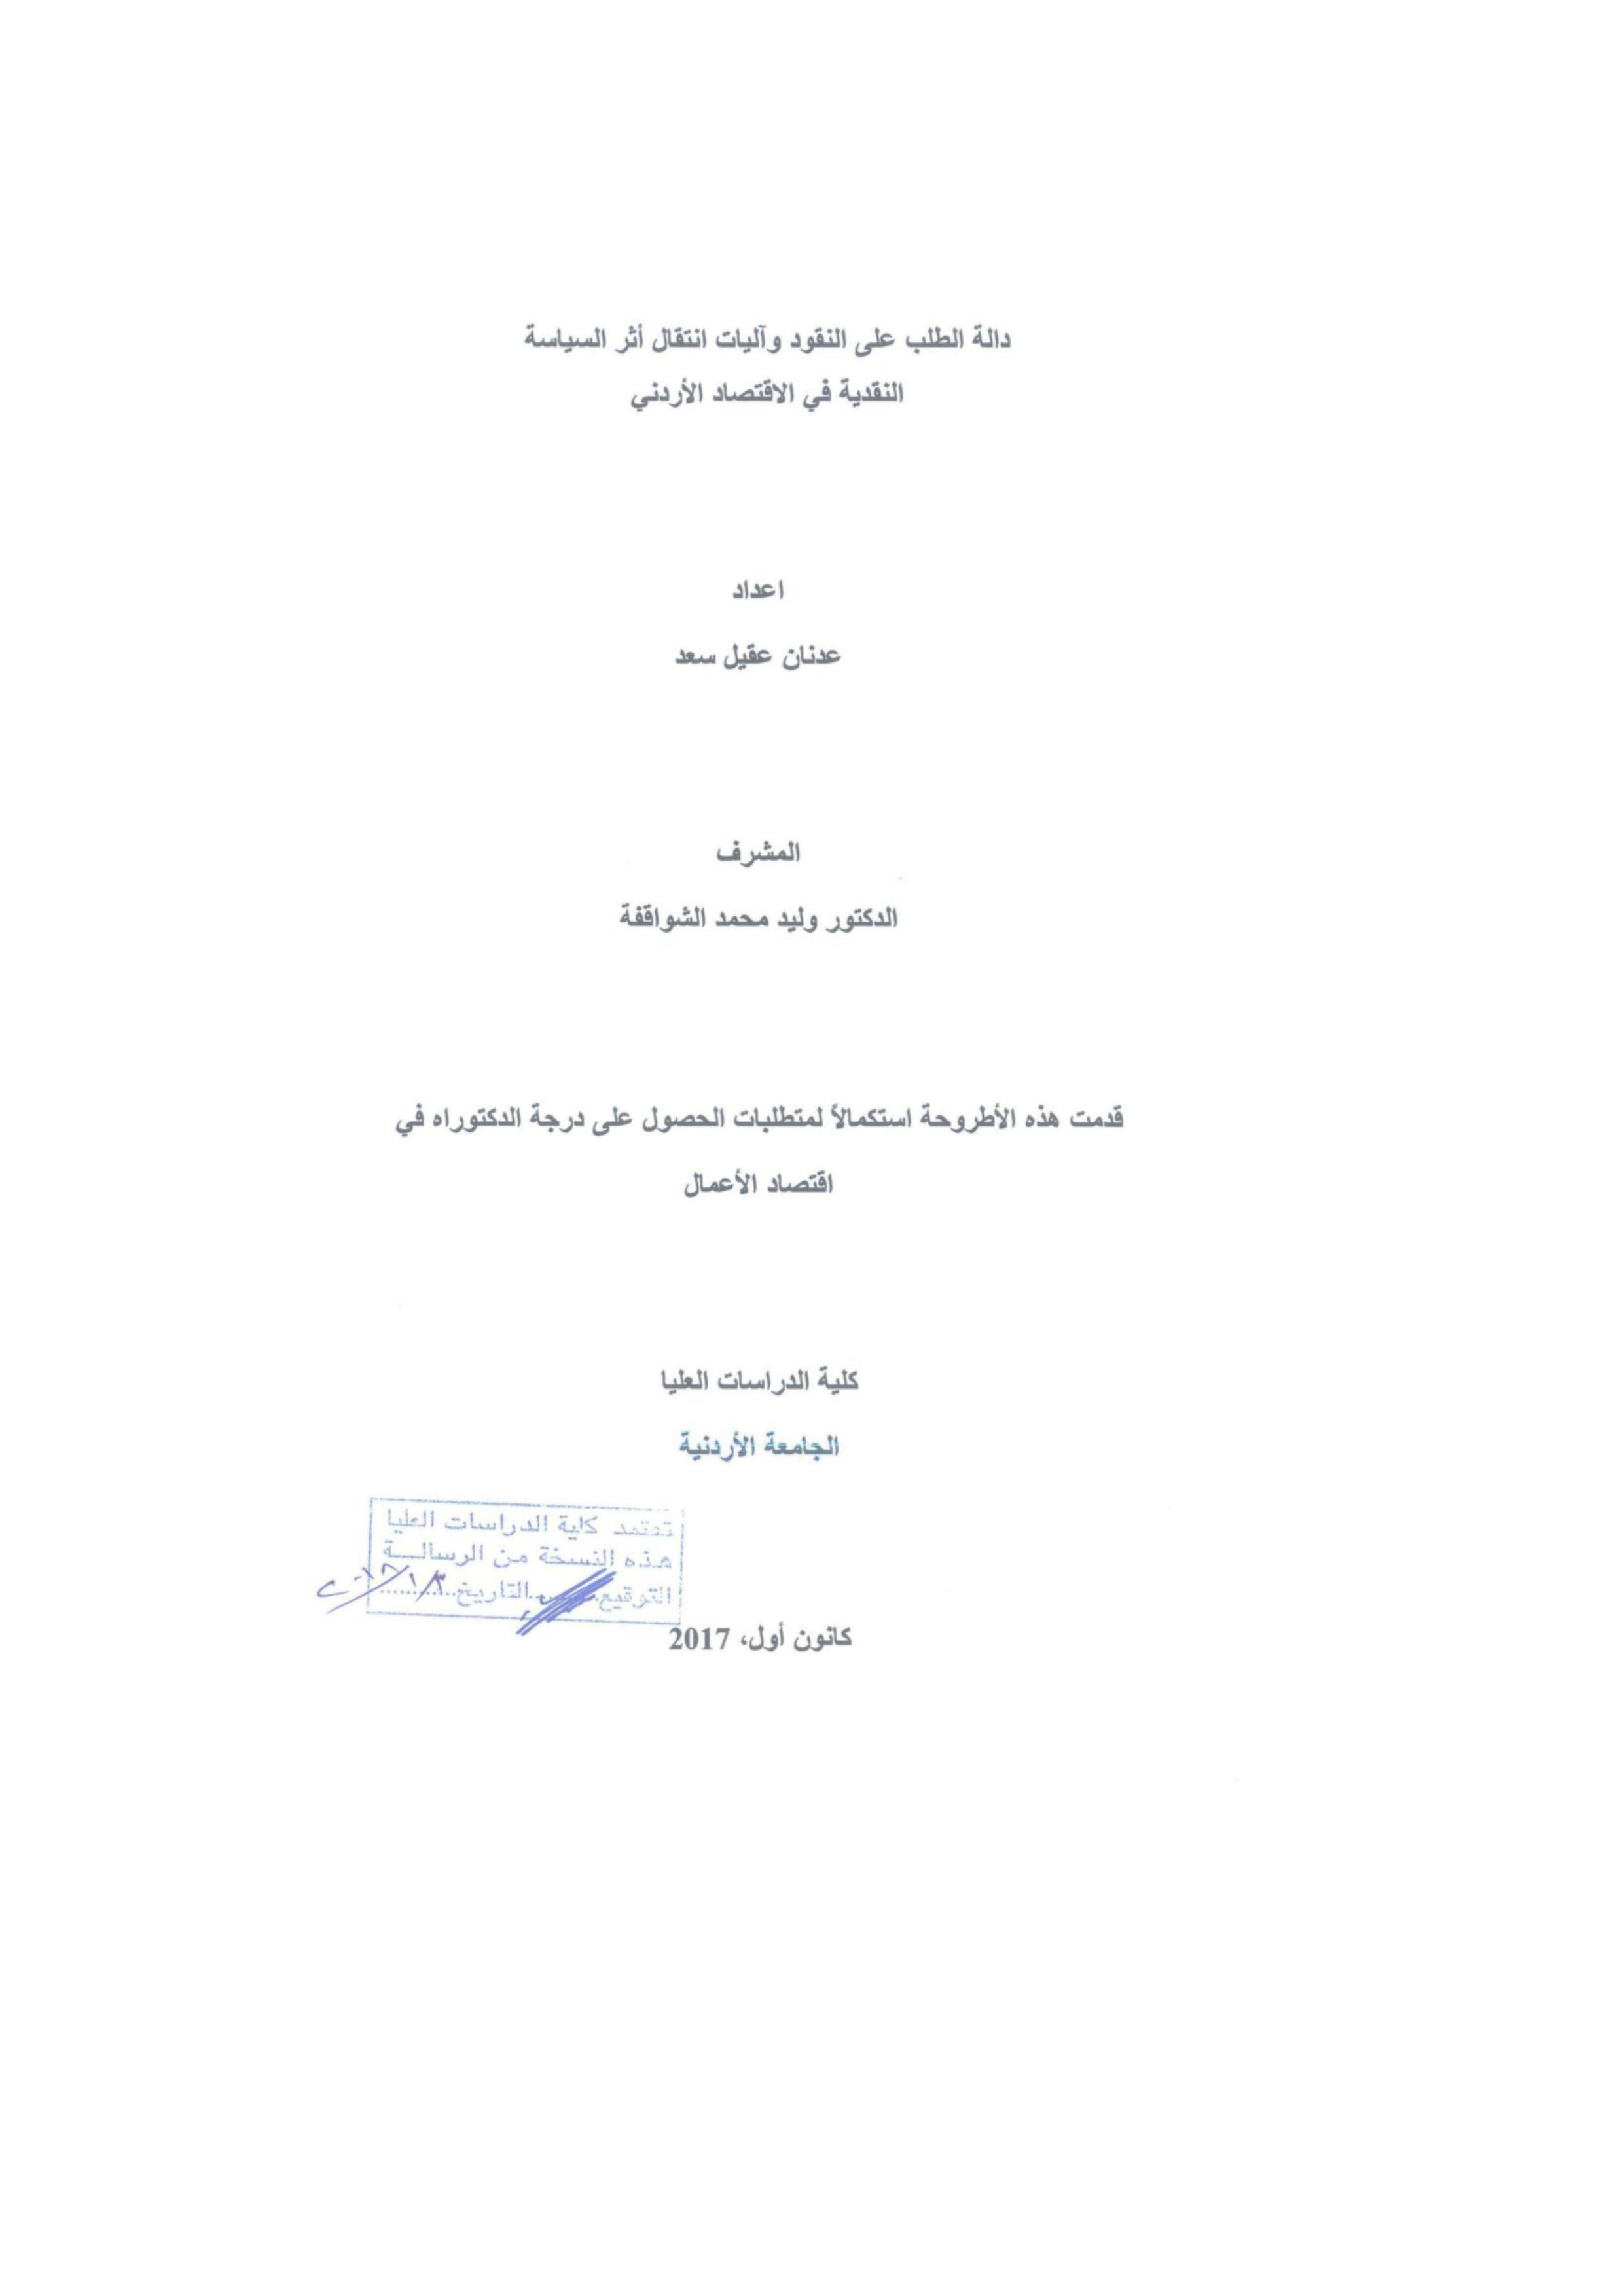 دالة الطلب على النقود وآليات انتقال أثر السياسة
النقدية في الاقتصاد الأردني
اعداد
عدنان عقيل سعد
المشرف
الدكتور وليد محمد الشواقفة
قدمت هذه الأطروحة استكمالاً لمتطلبات الحصول على درجة الدكتوراه في
اقتصاد الأعمال
كلية الدراسات العليا
الجامعة الأردنية
تعتمد كلية الدراسات العليا
هذه النسخة من الرسالـــة
التوقيع.......التاريخ..........
كانون أول، 2017